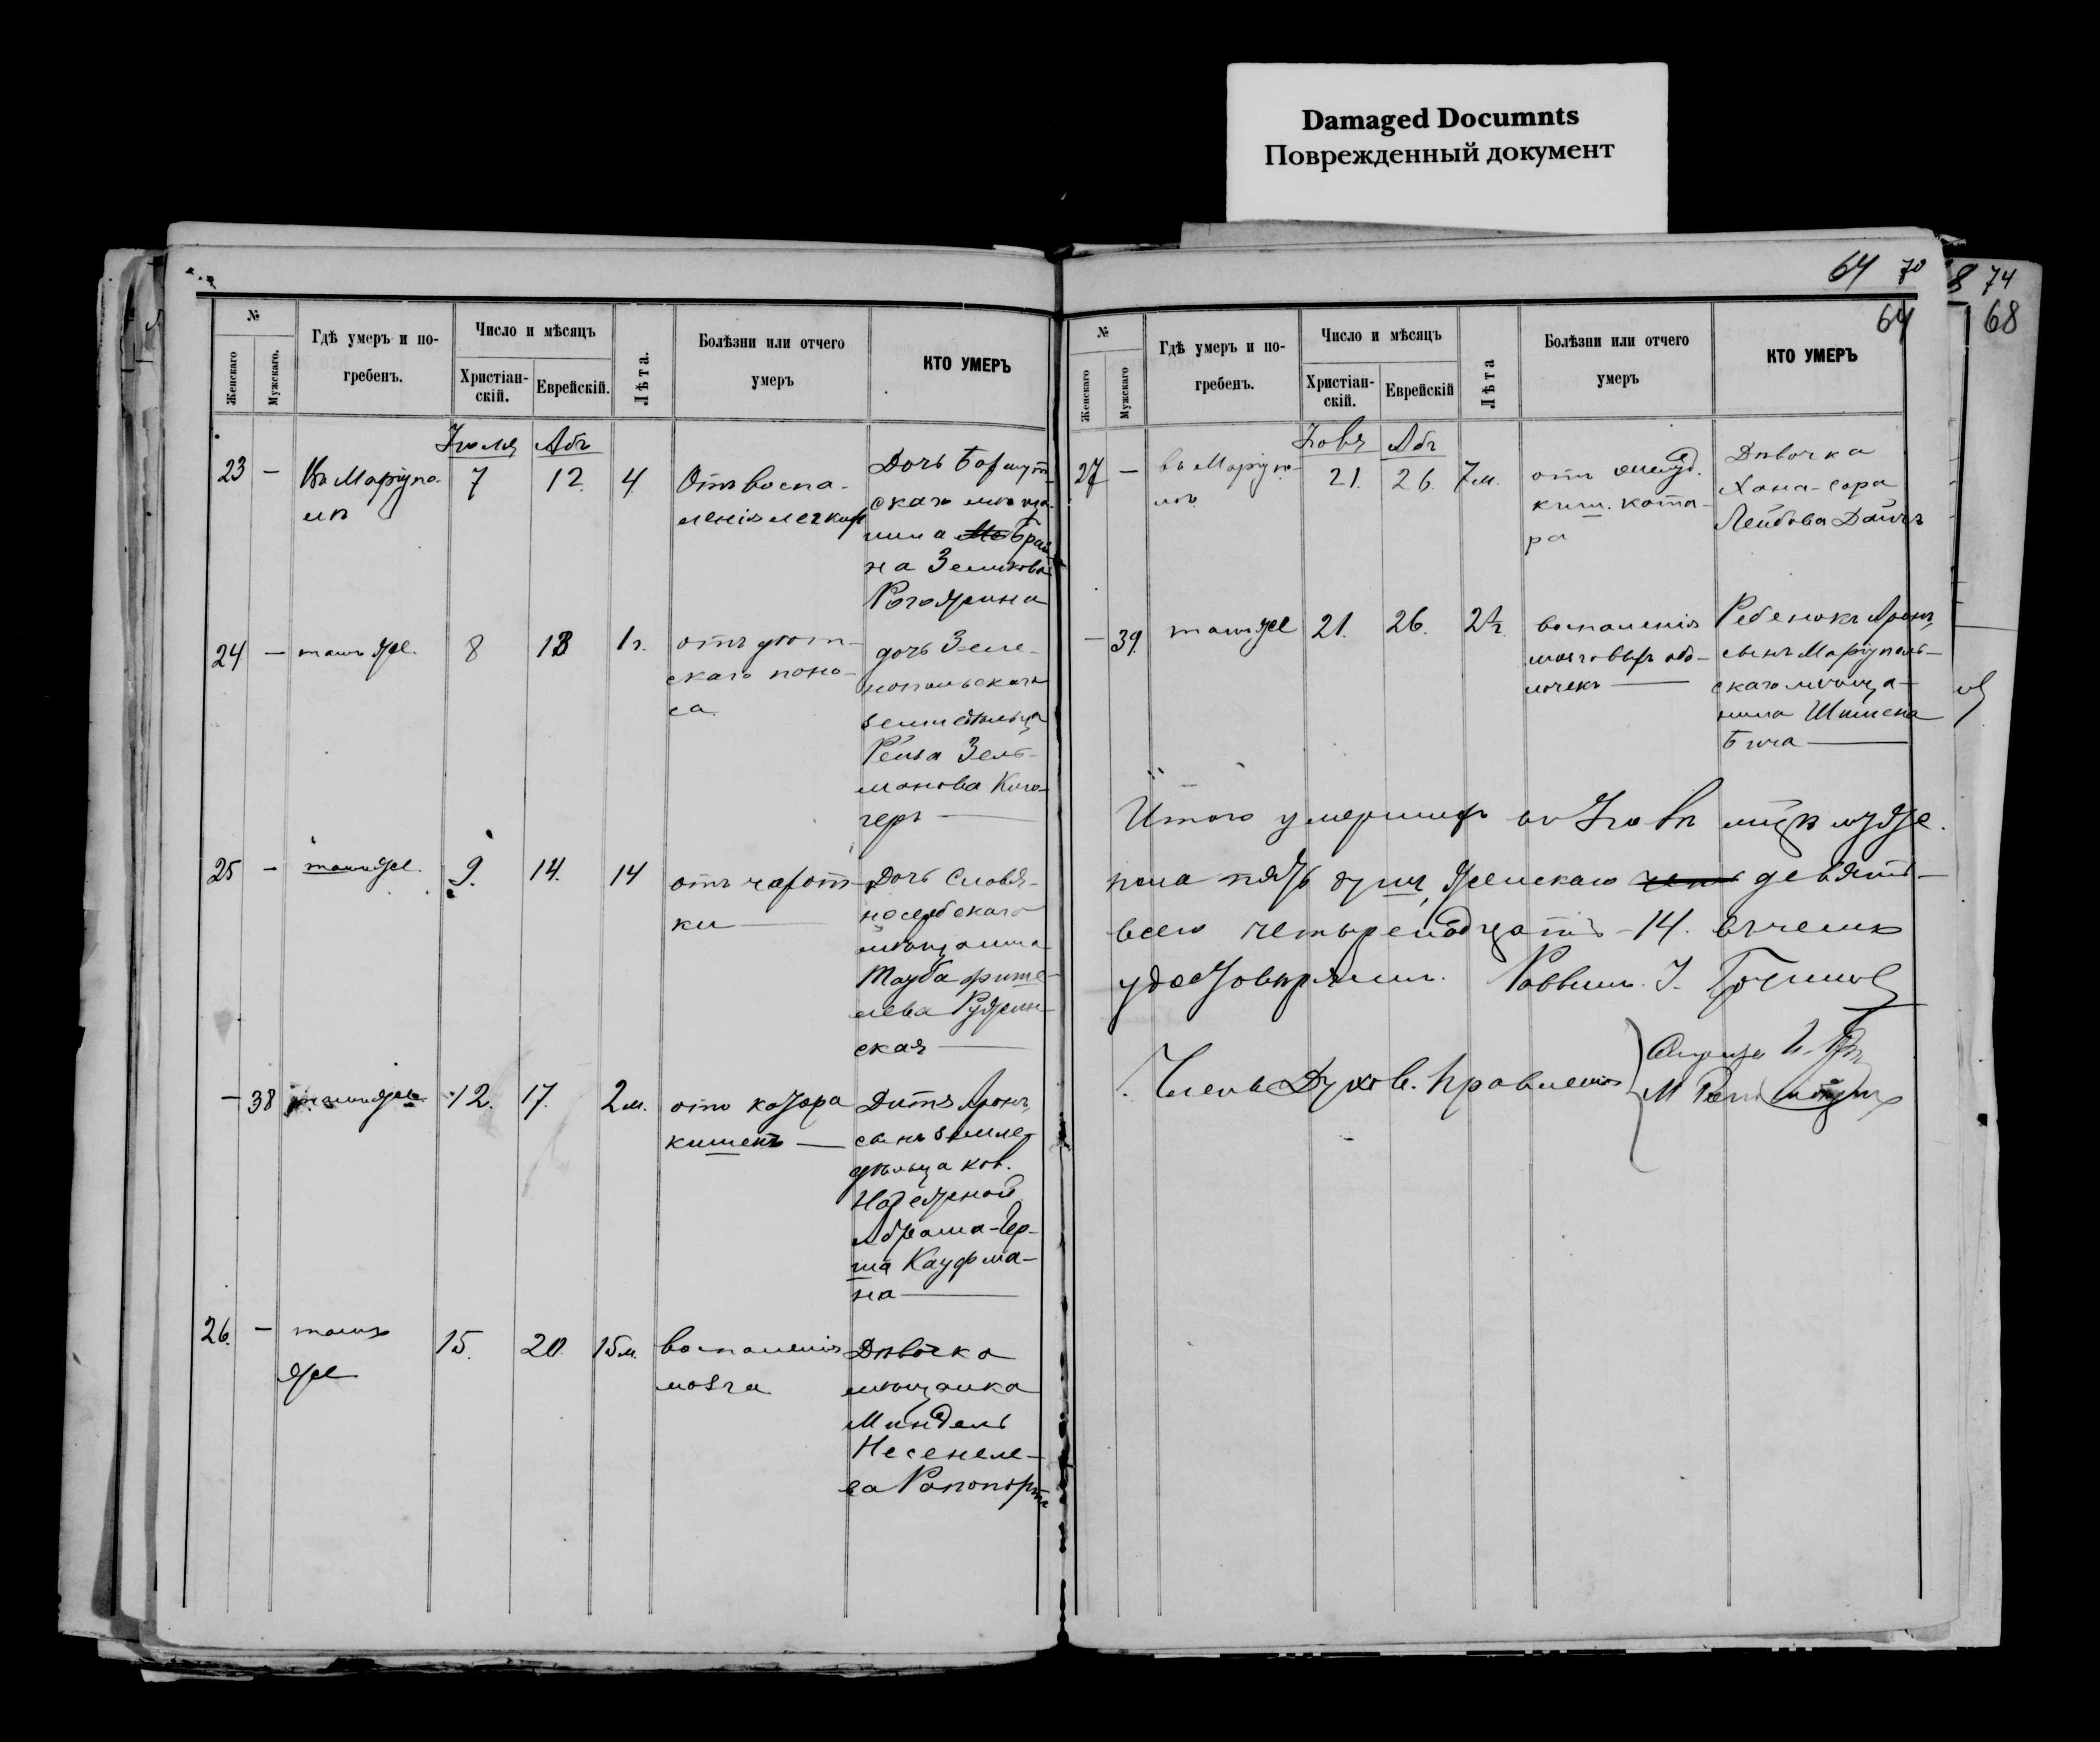 Damaged Documnts
Поврежденный документ
64 70
8 74
64
68
№
Женскаго
Мужскаго.
Гдѣ умеръ и по-
гребенъ.
Число и мѣсяцъ
Христіан-
скій.
Еврейскій.
Лѣта.
Болѣзни или отчего
умеръ
КТО УМЕРЪ
Іюля Абъ
23 — Въ Маріупо-
лѣ
7 12. 4.
Отъ воспа-
ленія легкихъ
Дочь
скаго мѣща-
нина
на Зеликова
24 — тамъ же. 8 13 1 г.
отъ дѣт-
скаго поно-
са.
дочь Зеле-
нопольскаго
земледѣльца
Рейза Зель-
манова
25 — тамъ же. 9. 14. 14
отъ чахот-
ки —
Дочь Славя-
носербскаго
мѣщанина
Тауба
ская —
— 38 тамъ же 12. 17. 2 м.
отъ катара
кишекъ —
Дитя Аронъ,
сынъ земле-
дѣльца кол.
Абрама-Гер-
ша Кауфма-
на —
26. — тамъ
же
15. 20. 15 м.
воспаленія
мозга
Дѣвочка
мѣщанка
Миндель
Несенеле-
ва Рапопортъ
№
Женскаго
Мужскаго
Гдѣ умеръ и по-
гребенъ.
Число и мѣсяцъ
Христіан-
скій.
Еврейскій
Лѣта
Болѣзни или отчего
умеръ
КТО УМЕРЪ
Абъ
27 — въ Маріупо-
лѣ.
21. 26. 7 м.
отъ желуд.
киш. ката-
ра
Дѣвочка
Хана-Сора
Лейбова
— 39. тамъ же 21. 26.
воспаленія
мозговыхъ обо-
лочекъ —
Ребенокъ Аронъ,
сынъ Маріуполь-
скаго мѣща-
нина
Итого умершихъ въ
пола пять душ, женскаго девять —
всего четырнадцать — 14. въ чемъ
удостовѣряемъ. Раввинъ І.
Члены Духов. Правленія